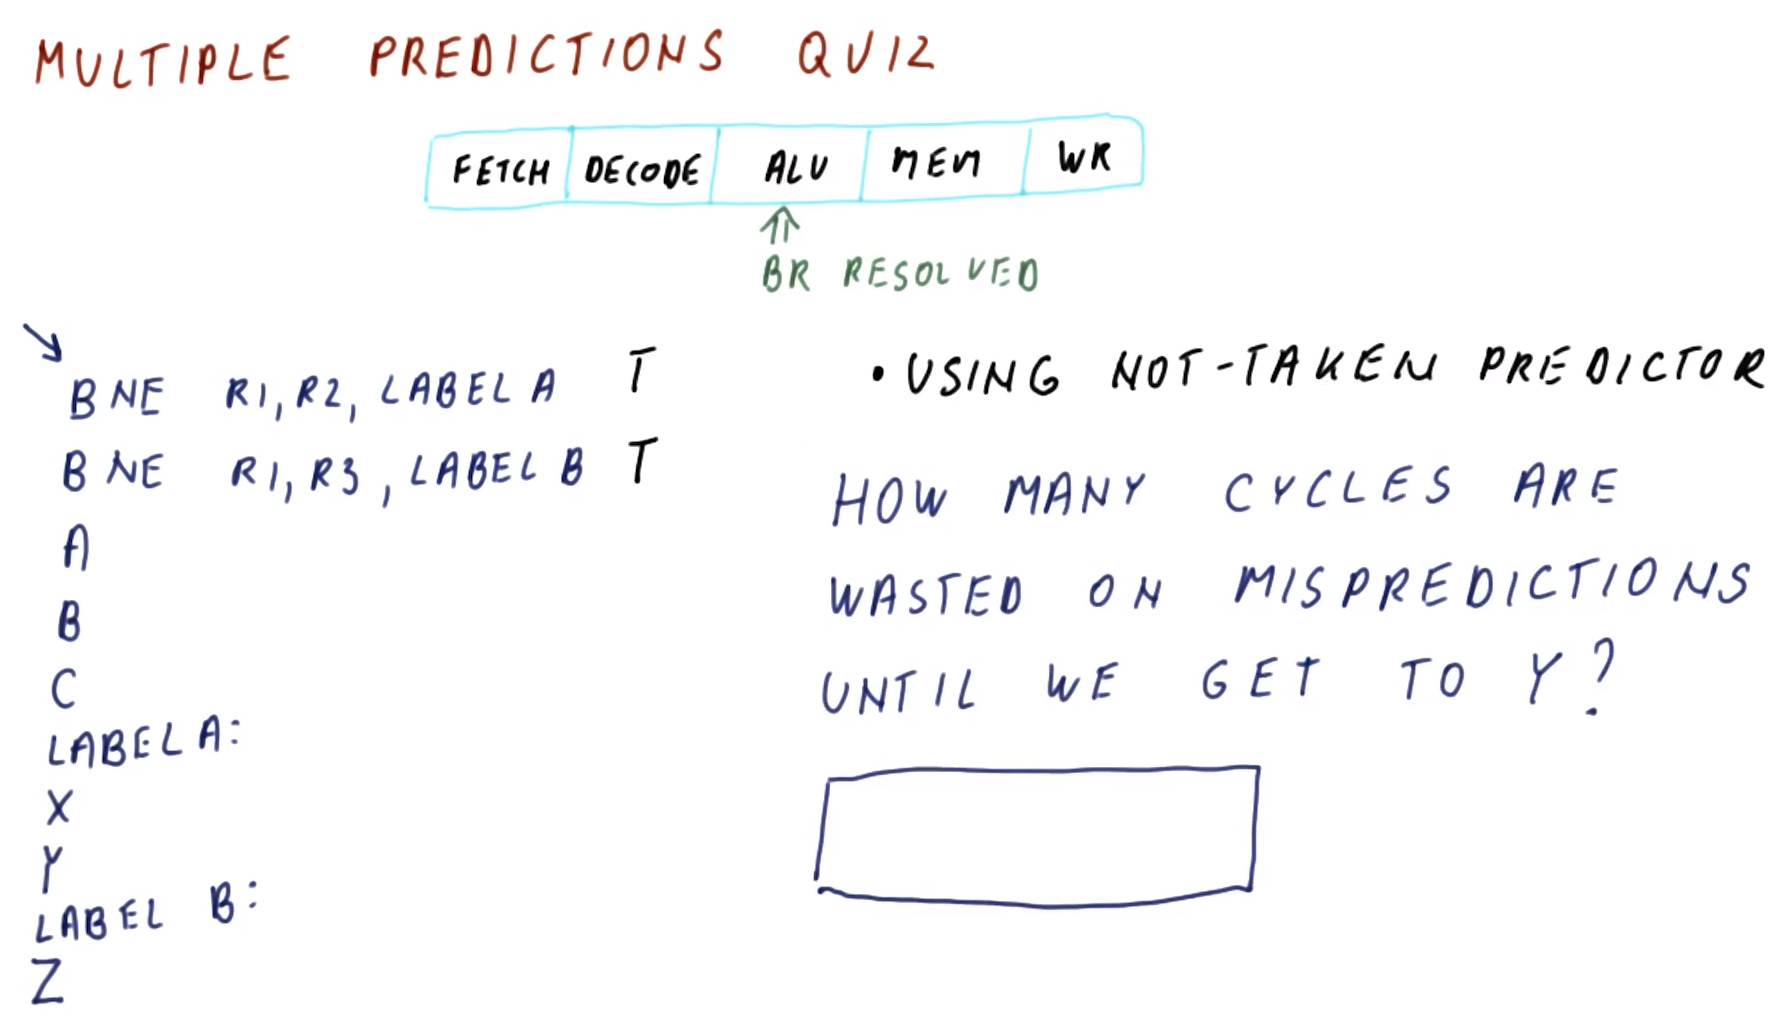 MULTIPLE PREDICTIONS QUIZ
FETCH DECODE ALU MEM WR
BR RESOLVED
BNE R1, R2, LABEL A T
BNE R1, R3, LABEL B T
A
B
C
LABEL A:
X
Y
LABEL B:
Z
• USING NOT-TAKEN PREDICTOR
HOW MANY CYCLES ARE
WASTED ON MISPREDICTIONS
UNTIL WE GET TO Y?